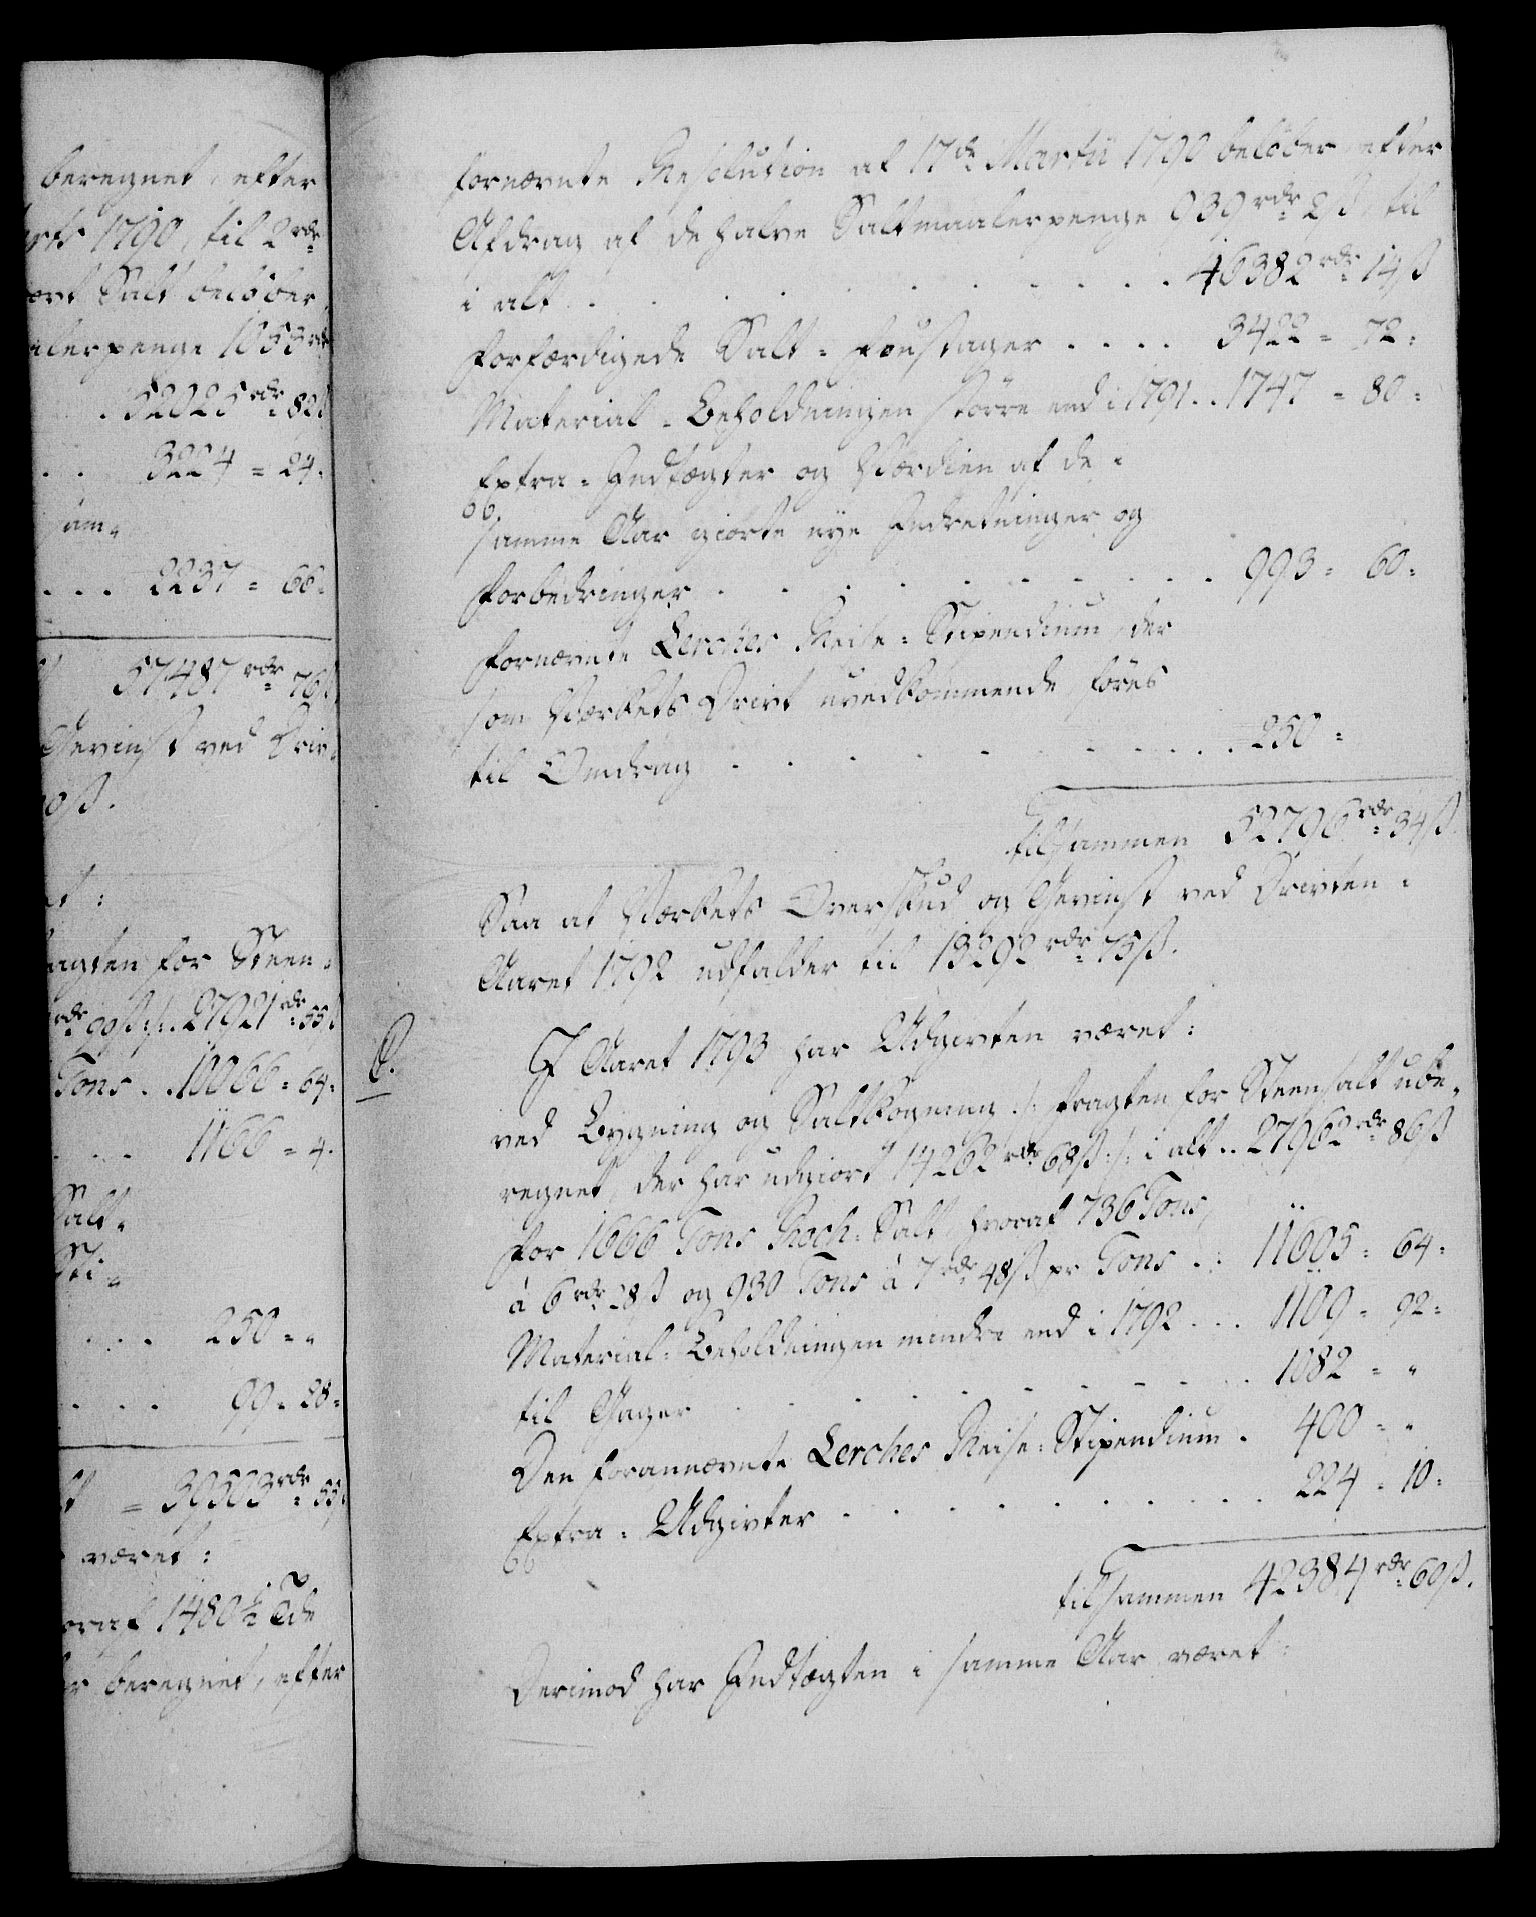 beregnet, efter
1790, til 2 rdr
Salt beløber,
penge 1053 rdr
. 52025 rdr 82ß
. . 3224 = 24.
. . . 2237 = 66.
57487 rdr 76ß
Gevinst ved Driv=
for Steen=
27921 rdr 55ß
Tons . . 10066 = 64.
. . . 1166 = 4.
Salt=
Sti=
. . . 250 = "
. . . 99 = 28=
= 39503 rdr 55ß
været:
1480½ Tde
beregnet, efter
fornævnte Resolution af 17de Martii 1790 beløber, efter
Afdrag af de halve Saltmaalerpenge 939 rdr 2ß, til
i alt . . . . . . . . . . 46382 rdr 14ß
forfærdigede Salt=Foustager . . . . 3422 = 72=
Material=Beholdningen større end i 1791 . . 1747 = 80=
Extra=Indtægter og Værdien af de i
samme Aar giorte nye Indretninger og
Forbedringer . . . . . . . . . 993 = 60=
fornævnte Lerches Reise=Stipendium, der
som Værkets Drivt uvedkommende føres
til Omdrag . . . . . . . . . 250 =
tilsammen 52796 rdr 34ß.
Saa at Værkets Overskud og Gevinst ved Drivten i
Aaret 1792 udfalder til 13292 rdr 75ß.
C.
I Aaret 1793 har Udgivten været:
ved Bygning og Saltkogning /: Fragten for Steensalt ube=
regnet, der har udgiort 14262 rdr 68ß :/ i alt . . 27962 rdr 86ß
for 1666 Tons Roch=Salt hvoraf 736 Tons,
à 6 rdr 28ß og 930 Tons à 7 rdr 48ß pr Tons . . 11605 = 64=
Material=Beholdningen mindre end i 1792 . . . 1109 = 92=
til Gager . . . . . . . . . 1082 = "
Den forannævnte Lerches Reise=Stipendium . 400 = "
Extra=Udgivter . . . . . . . . 224 = 10=
tilsammen 42384 rdr 60ß.
Derimod har Indtægten i samme Aar været: